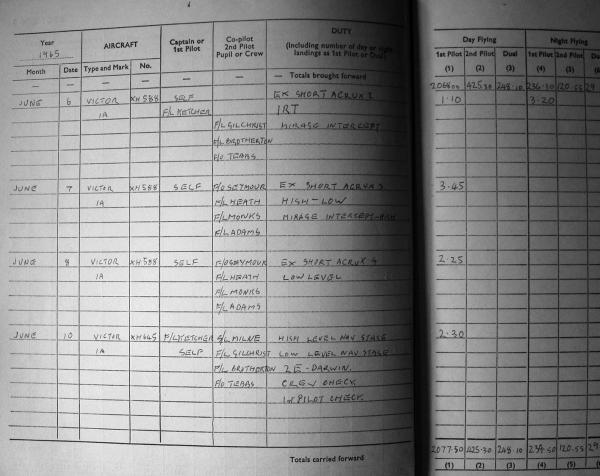 Year 1965
AIRCRAFT
Captain or 1st Pilot
Co-pilot 2nd Pilot Pupil or Crew
DUTY
(Including number of day or night landings as 1st Pilot or Dual)
Day Flying
Night Flying
Month Date Type and Mark No.
1st Pilot 2nd Pilot Dual 1st Pilot 2nd Pilot
(1) (2) (3) (4) (5)
— — — — — — — Totals brought forward
425.30 248.10 236.30 120.55 29
JUNE 6 VICTOR XH588 SELF EX SHORT ACRUX 2 1.10 3.20
1A F/L KETCHER IRT
F/L GILCHRIST MIRAGE INTERCEPT
F/L BROTHERTON
F/O TEBBS
JUNE 7 VICTOR XH588 SELF F/O SEYMOUR EX SHORT ACRUX 3 3.45
1A F/L HEATH HIGH-LOW
F/L MONKS MIRAGE INTERCEPT-HIGH
F/L ADAMS
JUNE 8 VICTOR XH588 SELF F/O SEYMOUR EX SHORT ACRUX 4 2.25
1A F/L HEATH LOW LEVEL
F/L MONKS
F/L ADAMS
JUNE 10 VICTOR XH645 F/L KETCHER S/L MILNE HIGH LEVEL NAV STAGE 2.30
1A SELF F/L GILCHRIST LOW LEVEL NAV STAGE
F/L BROTHERTON 2E-DARWIN.
F/O TEBBS CREW CHECK.
1st PILOT CHECK.
Totals carried forward
2077.50 425.30 248.10 239.50 120.55 29
(1) (2) (3) (4) (5)